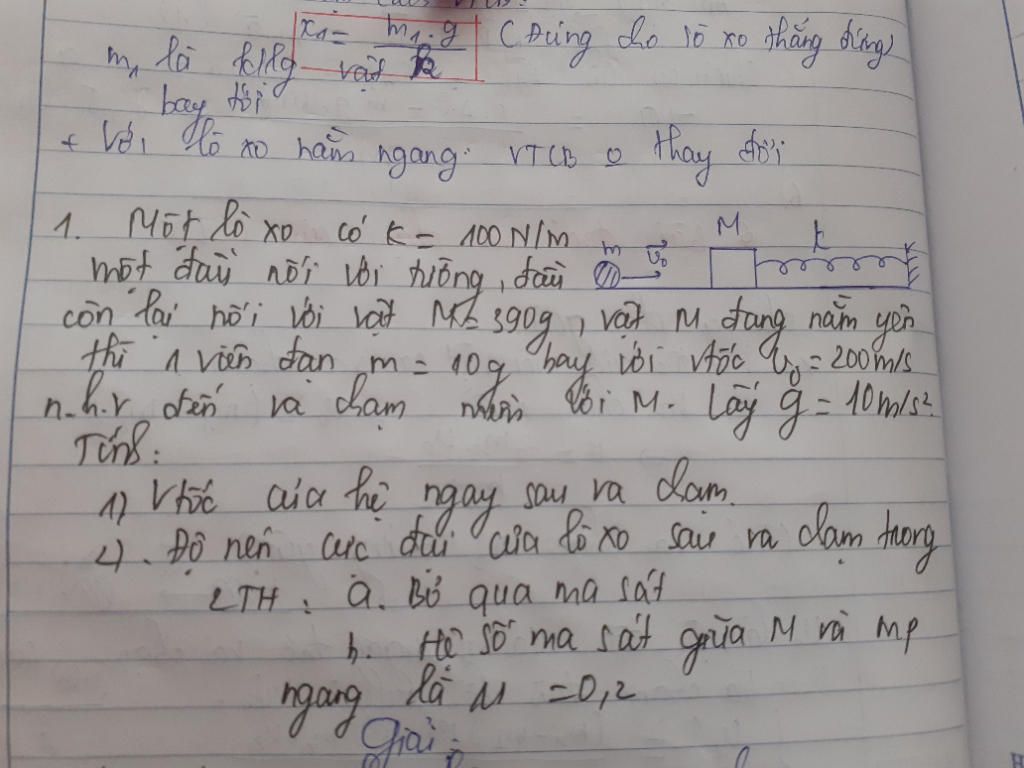 x₁ = m₁.g / k (Đúng cho lò xo thẳng đứng)
m₁ là klg vật
bay tới
+ Với lò xo nằm ngang: VTCB O thay đổi
1. Một lò xo có k = 100N/m
m v₀ M k
một đầu nối với tường, đầu
còn lại nối với vật M = 390g, vật M đang nằm yên
thì 1 viên đạn m = 10g bay với vtốc v₀ = 200m/s
n.h.v đến va chạm mềm với M. Lấy g = 10m/s².
Tính:
1) Vtốc của hệ ngay sau va chạm.
2). Độ nén cực đại của lò xo sau va chạm trong
2TH: a. Bỏ qua ma sát
b. Hệ số ma sát giữa M và mp
ngang là μ = 0,2
Giải: